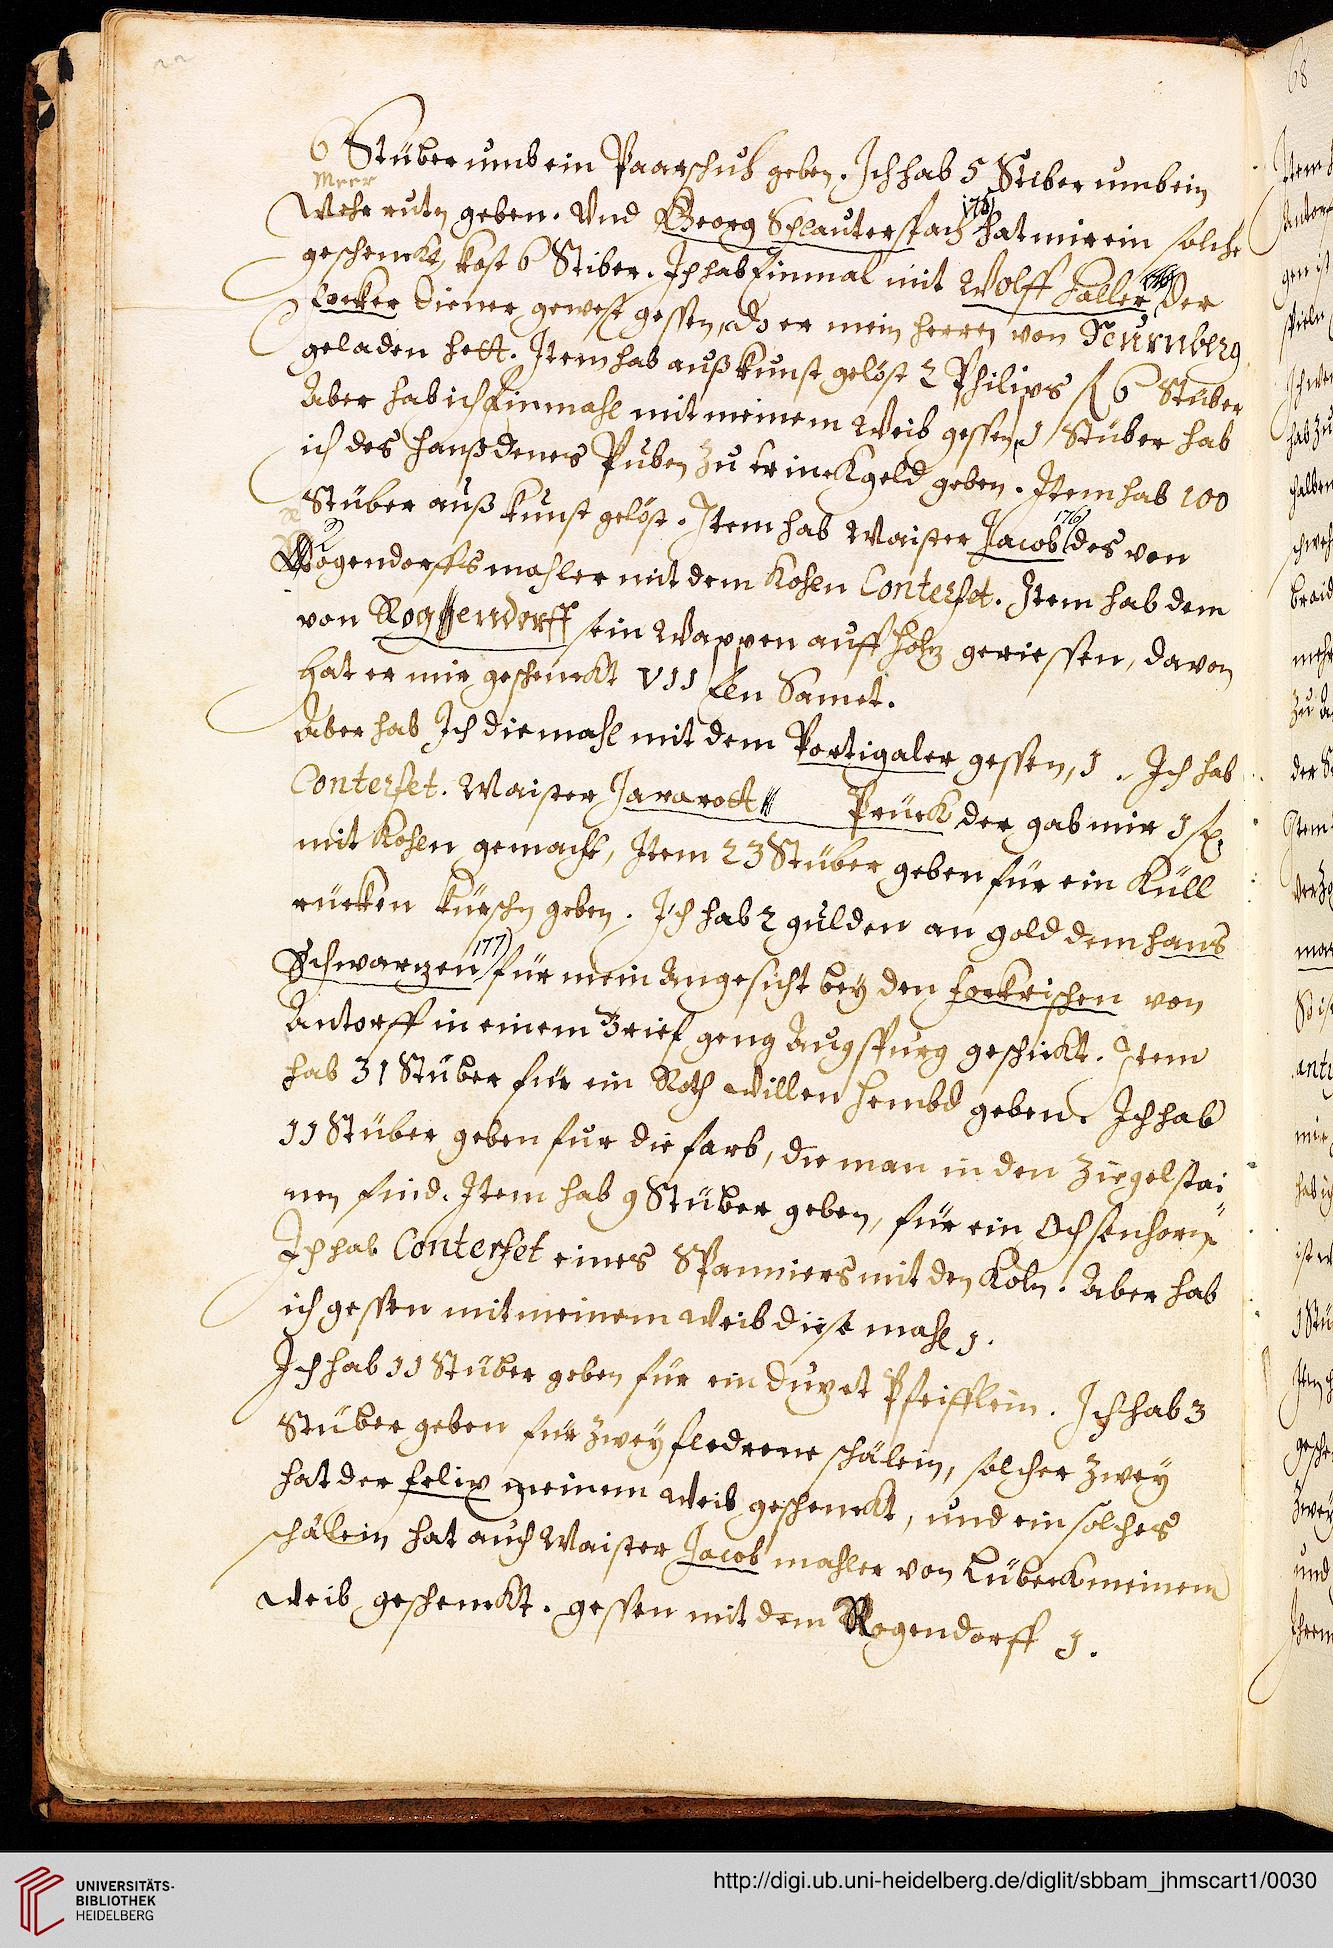 6 Stüber umb ein Paar schuh geben. Ich hab 5 Stiber umb ein
Meer
Wehr rutn geben. Und Georg Schlauterspach 174) hat mir ein solche
geschenckt, kost 6 Stiber. Ich hab Einmal mit Wolff Haller 175) der
Focker diener gewest gessen, do er mein herren von Neurnberg
geladen hett. Item hab auß kunst gelöst 2 Philips f 6 Stüber
Aber hab ich Einmahl mit meinem Weib gessen, J Stüber hab
ich des hanß denes Puben zu trinckgeld geben. Item hab 100
Stüber auß kunst gelöst. Item hab Maister Jacob 176) des von
Rogendorffs mahler mit dem Kohln Conterfet. Item hab dem
von Roggendorff sein Wappen auff holz geriessen, davon
hat er mir geschenckt VJJ Eln Samet.
Aber hab Ich die mahl mit dem Portigaler gessen, J. Ich hab
Conterfet. Maister Jararott Prück der gab mir J f
mit Kohln gemacht, Item 23 Stüber geben für ein Küll
rücken kürschn geben. Ich hab 2 gulden an gold dem hans
Schwarzen 177) für mein angesicht bey den fockrischen von
Antorff in einem Brief geng Augspurg geschickt. Item
hab 31 Stüber für ein Roth willen hembd geben. Ich hab
JJ Stüber geben für die farb, die man in den Ziegelstai
nen find. Item hab 9 Stüber geben, für ein Ochsenhorn
Ich hab Conterfet eines Spanniers mit den Koln. Aber hab
ich gessen mit meinem weib diese mahl J.
Ich hab JJ Stüber geben für ein duzet Pfeifflein. Ich hab 3
Stüber geben für zwey fledrene schälein, solcher zwey
hat der Felix meinem weib geschenckt, und ein solches
schälein hat auch Maister Jacob mahler von Lübeck meinem
weib geschenckt. gessen mit dem Rogendorff J.
68
UNIVERSITÄTS-
BIBLIOTHEK
HEIDELBERG
http://digi.ub.uni-heidelberg.de/diglit/sbbam_jhmscart1/0030